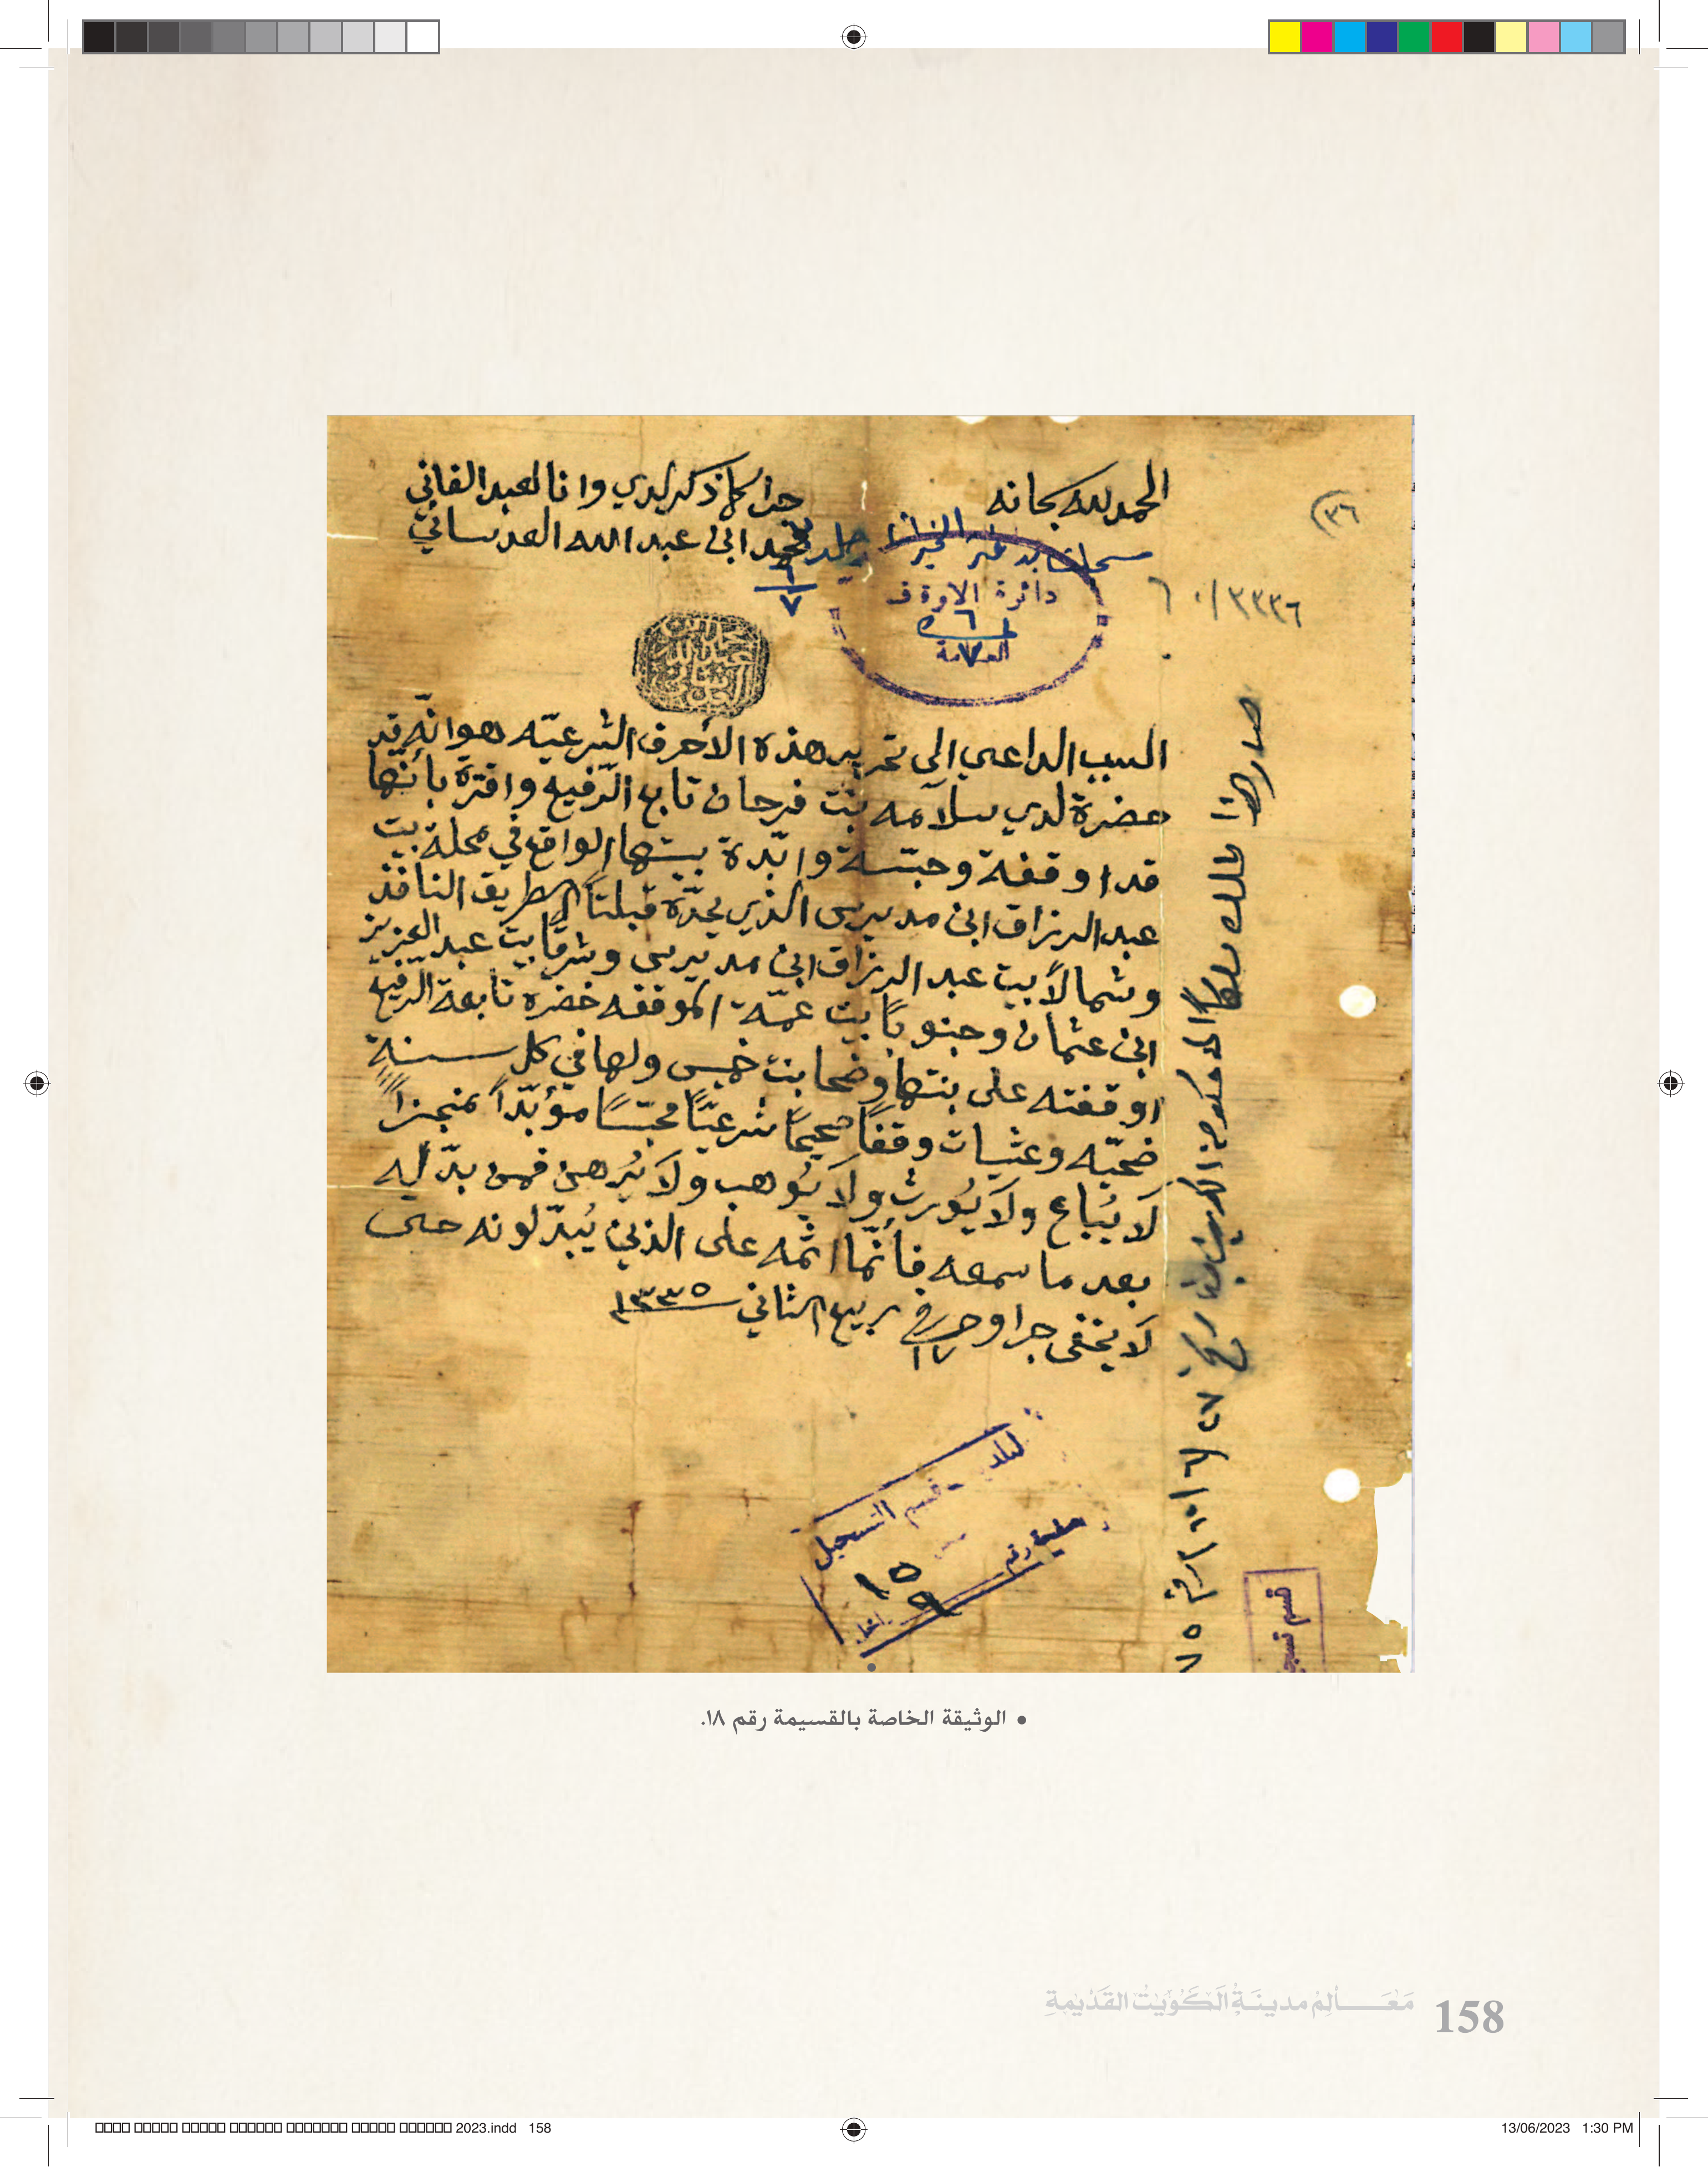 الحمد لله سبحانه
جرا كما ذكر لدي وانا العبد الفاني
محمد ابن عبد الله العدساني
(٣٦
٣٣٣٦
دائرة الاوقاف
العامة
٦
٧
السبب الداعي الى تحرير هذه الأحرف الشرعيّه هو انّه قد
حضرة لدي سلامه بنت فرحان تابع الرّفيع واقرّة بأنّها
قد اوقفة وحبّسة وابّدة بيتها الواقع في محلة بيت
عبد الرزاق ابن مديرس الذي يحدّه قبلتاً الطريق النافذ
وشمالاً بيت عبد الرزاق ابن مديرس وشرقا بيت عبد العزيز
ابن عثمان وجنوباً بيت عمّة الموقفه خضره تابعة الرفيع
اوقفته على بنتها وضحا بنت خميس ولها في كل سنة
ضحيّه وعشيات وقفاً صحيحاً شرعيّاً محبّساً مؤبّداً منجزاً
لا يُباع ولا يُورث ولا يُوهب ولا يُرهن فمن بدّله
بعد ما سمعه فأنّما اثمه على الذين يُبدّلونه حتى
لا يخفى جرا وحرر في ١٧ ربيع الثاني ١٣٣٥
صار هذا الملك ملكاً الى حكومة الكويت بتاريخ
قسم التسجيل
رقم
١٥٩
• الوثيقة الخاصة بالقسيمة رقم ١٨.
مَعَـالِمُ مدينَةِ الكُوَيْت القَدْيمَةِ 158
2023.indd 158
13/06/2023 1:30 PM